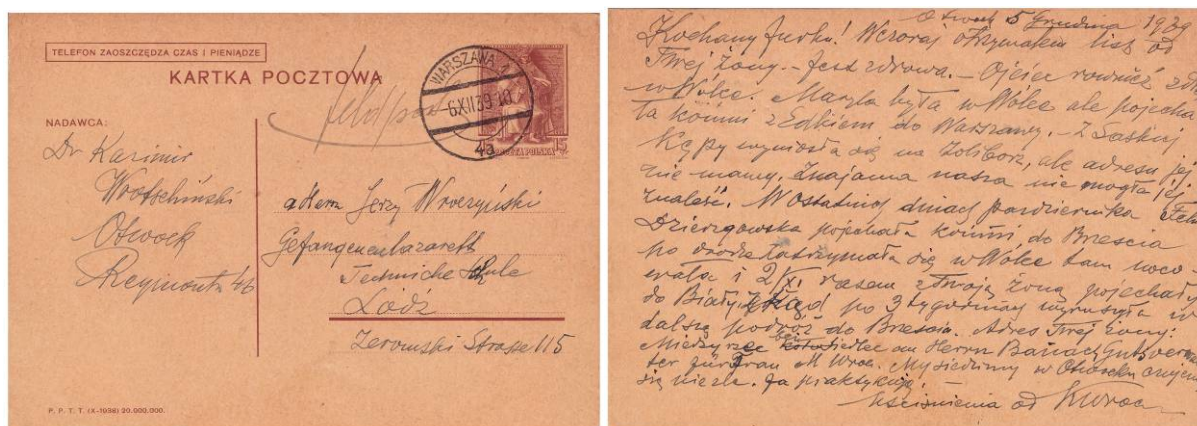 TELEFON ZAOSZCZĘDZA CZAS I PIENIĄDZE
KARTKA POCZTOWA
feldpost
WARSZAWA 2
6XII39
4a
POCZTA POLSKA 15
NADAWCA:
Dr Kazimir
Wrotschiński
Otwock
Reymonta 46
Herrn Jerzy Wroczyński
Gefangenenlazarett
Techniche Schule
Łódź
Żeromski Strasse 115
P. P. T. T. (X-1938) 20.000.000.
Otwock 5 Grudnia 1939
Kochany Jurku! Wczoraj otrzymałem list od
Twej żony. - Jest zdrowa. - Ojciec również
w Wólce. Maryla była w Wólce ale pojecha
ła końmi z Edkiem do Warszawy. - Z Saskiej
Kępy wyniosła się na Żoliborz, ale adresu jej
nie mamy. Znajoma nasza nie mogła jej
znaleść. W ostatnich dniach października
Dzierzgowska pojechała końmi do Brześcia
po drodze zatrzymała się w Wólce tam noco-
wała i 2/XI razem z Twoją żoną pojechały
do Białej, skąd po 3 tygodniach wyruszyła w
dalszą podróż do Brześcia. Adres Twej żony:
Międzyrzec Herrn Banach Gutsverwal
ter für Frau M Wroc. My siedzimy w Otwocku czujemy
się nieźle. Ja praktykuję.
Uściśnienia od KWroc